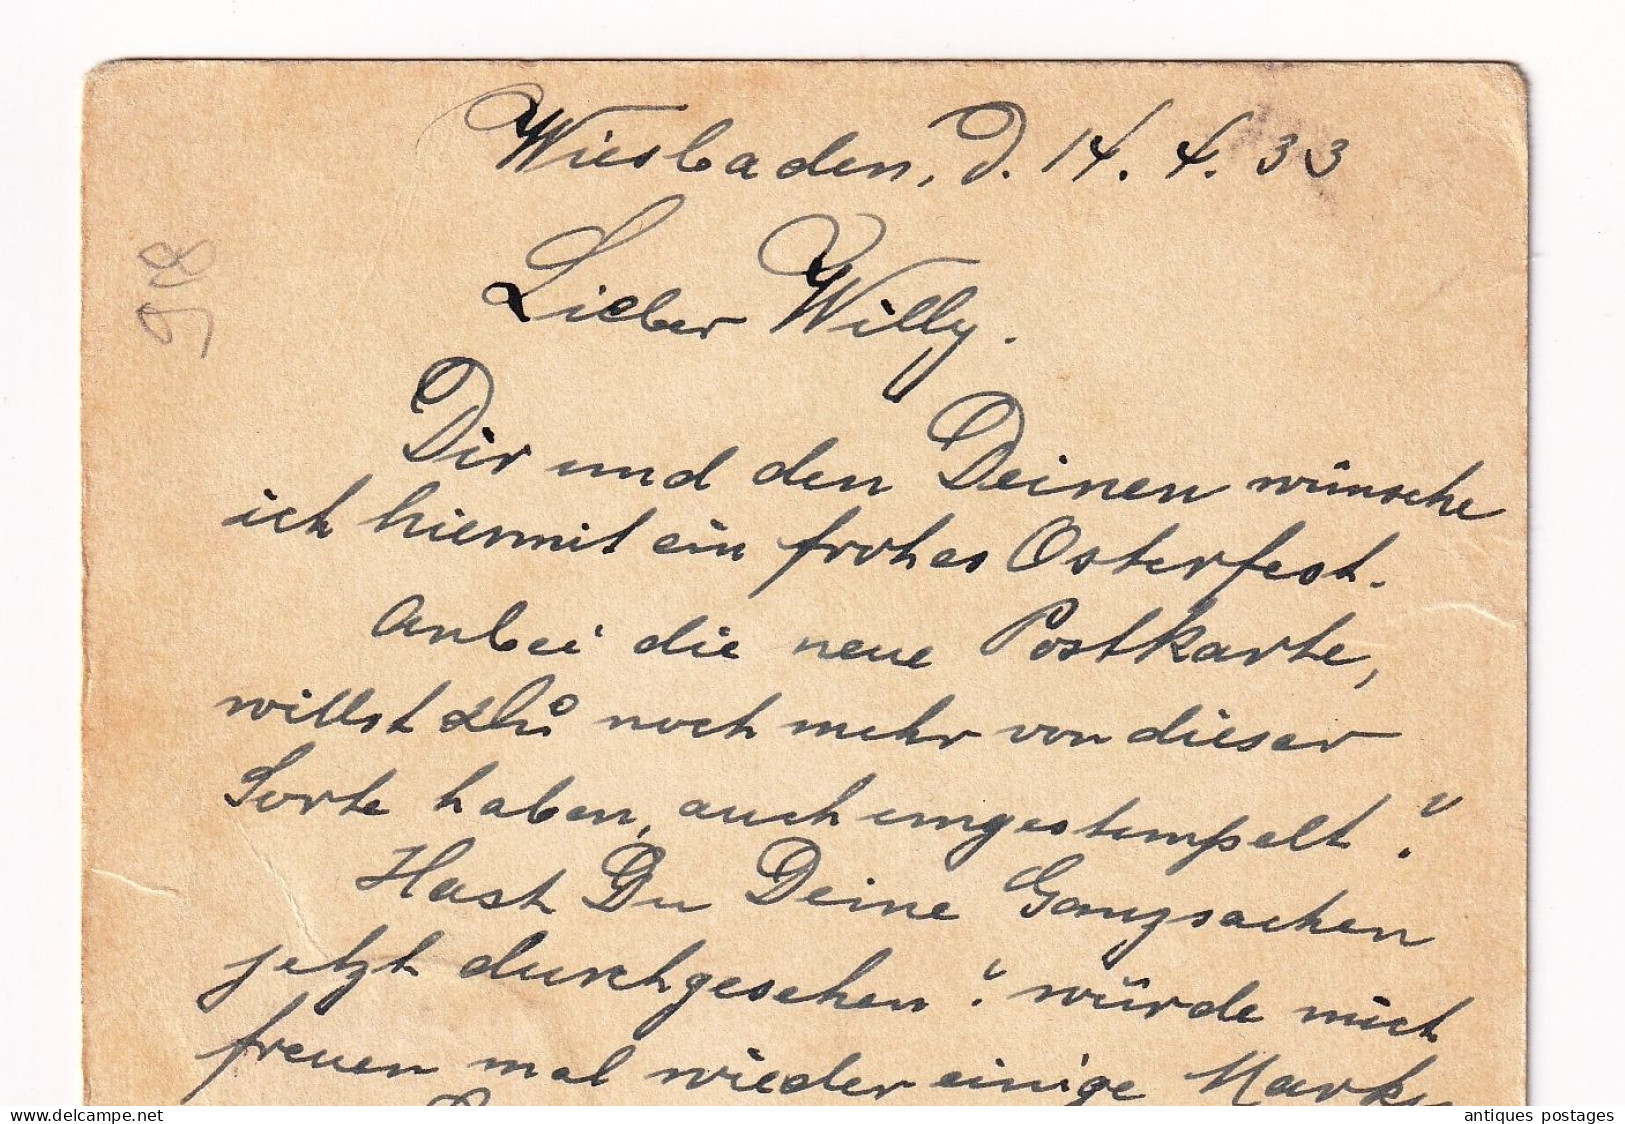 Wiesbaden, d. 14. 4. 33
Lieber Willy.
Dir und den Deinen wünsche
ich hiermit ein frohes Osterfest.
Anbei die neue Postkarte,
willst Du noch mehr von dieser
Sorte haben, auch ungestempelt?
Hast Du Deine Ganzsachen
jetzt durchgesehen? würde mich
freuen mal wieder einige
delcampe.net
antiques postages